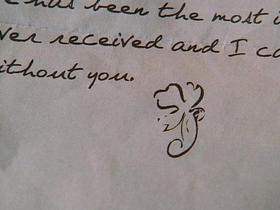 has been the most
ver received and I ca
ithout you.